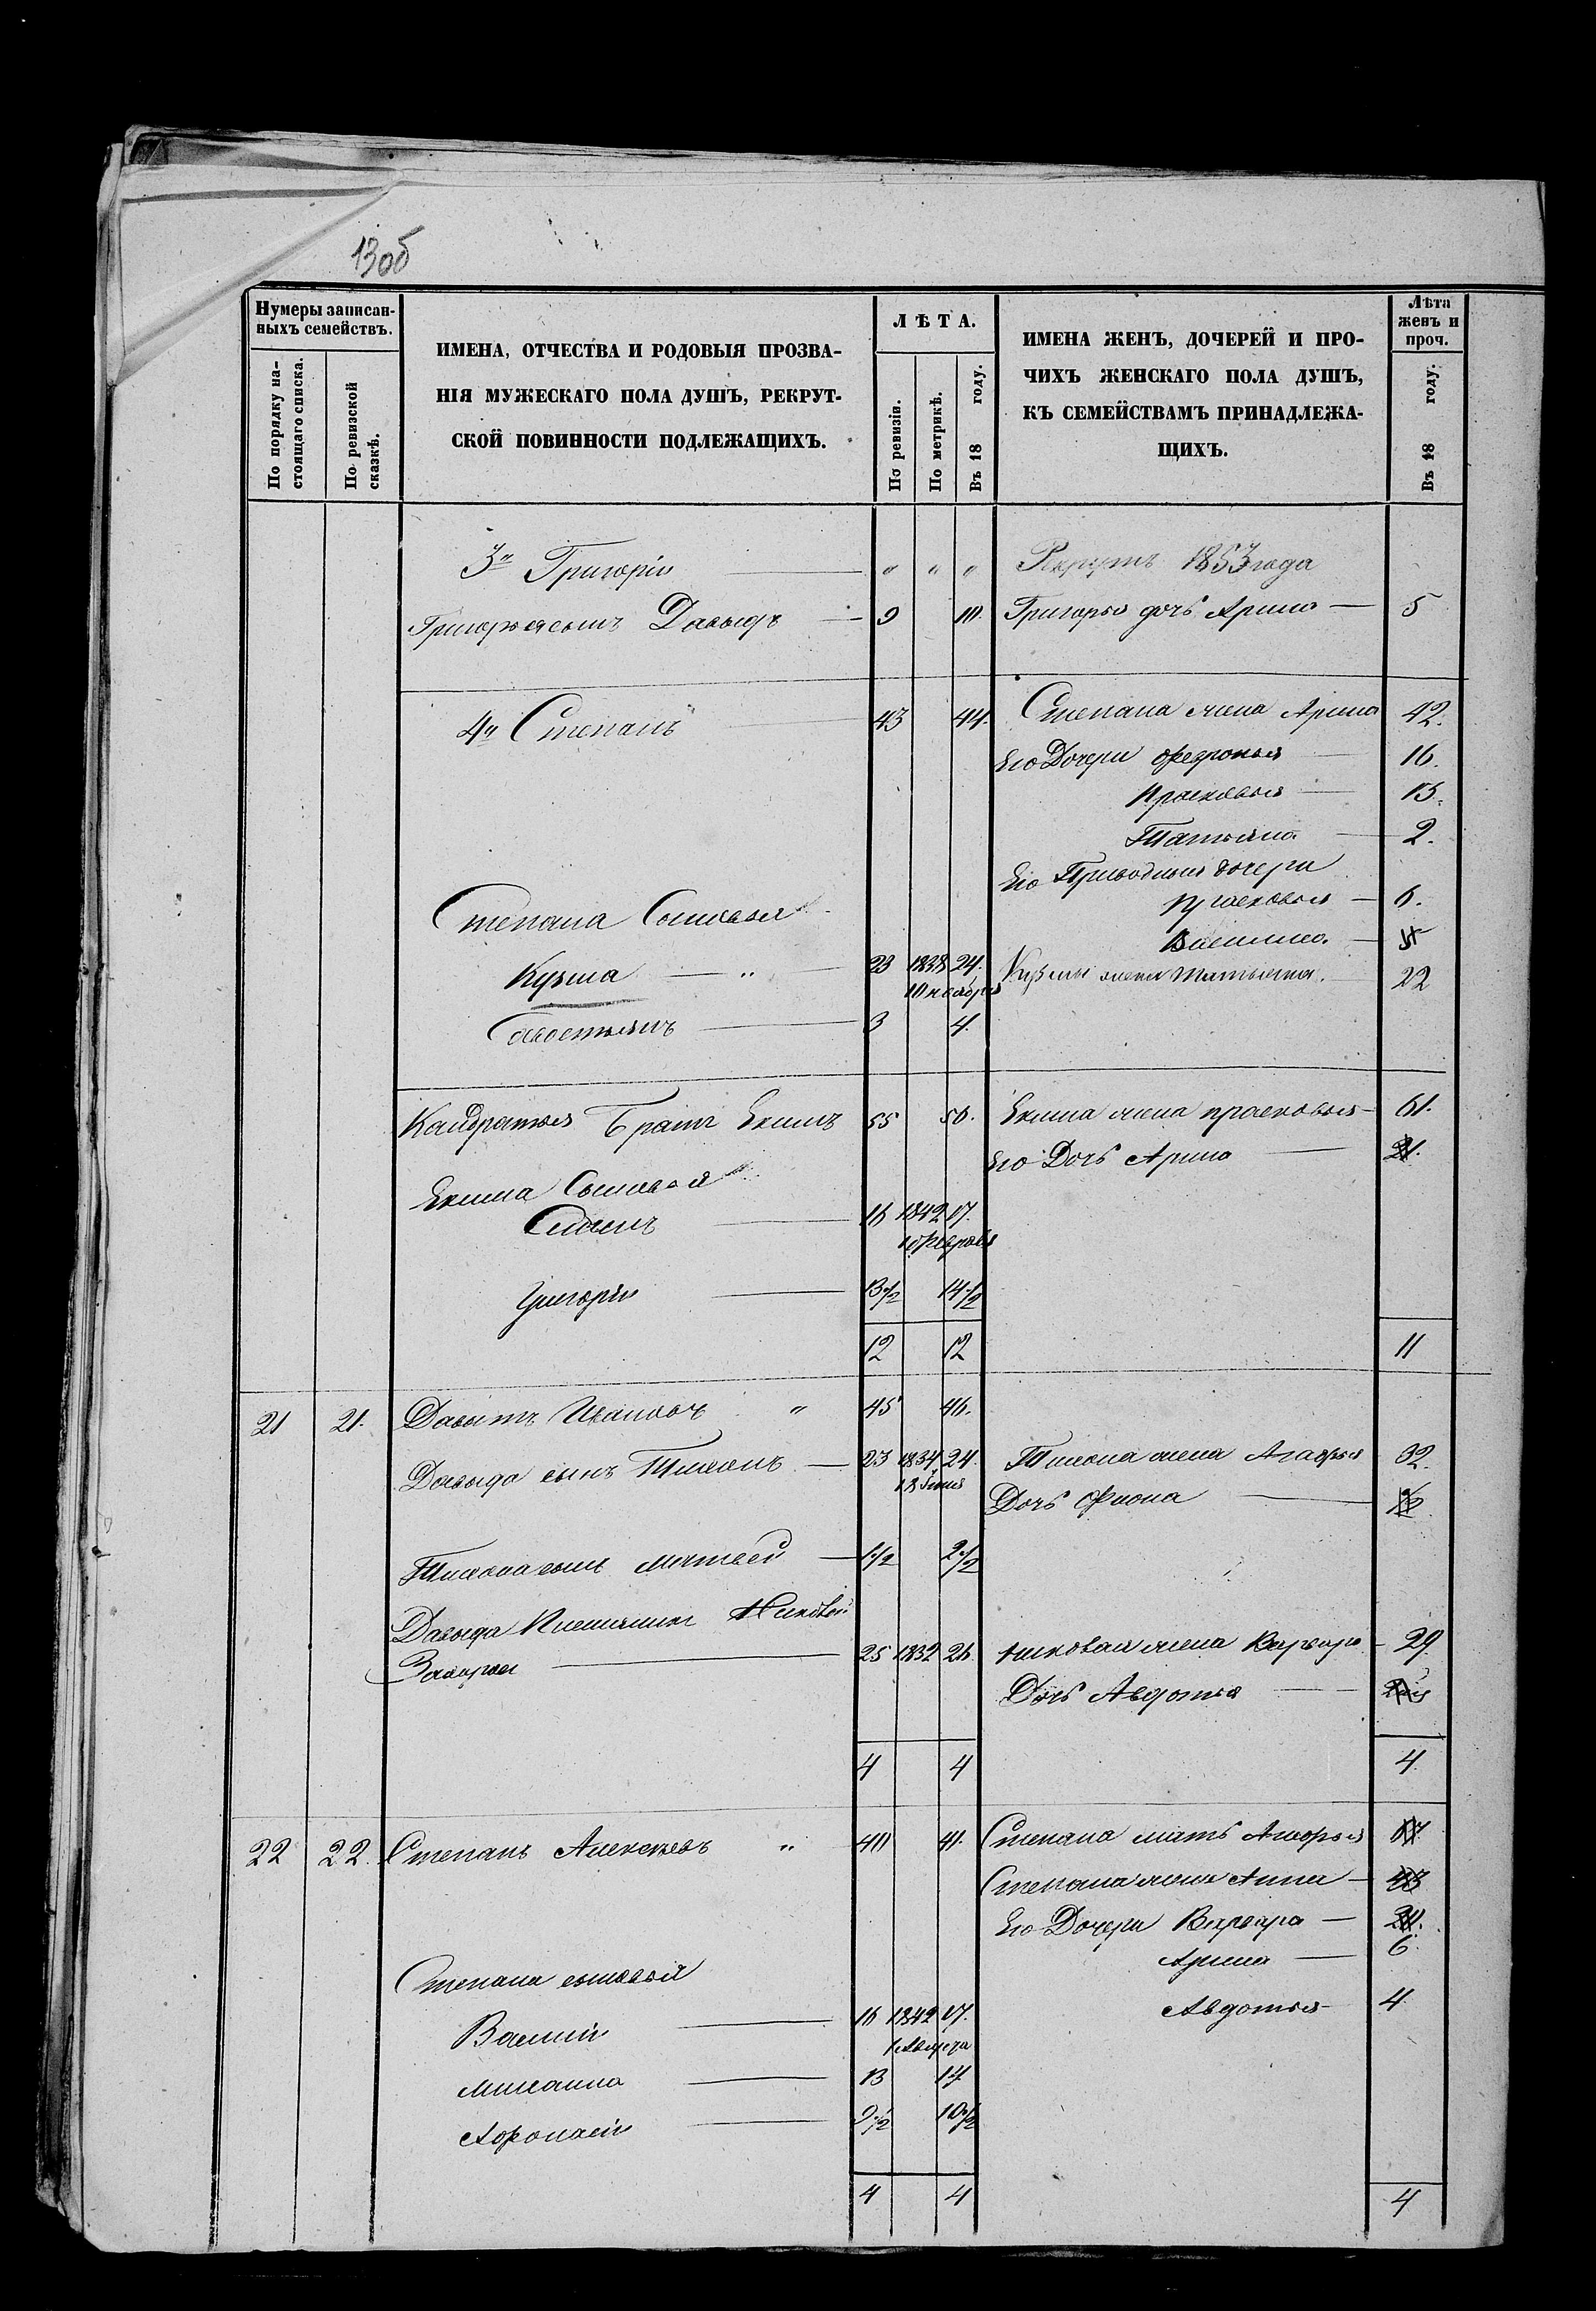 13об
Нумеры записан-
ныхъ семействъ.
По порядку на-
стоящаго списка.
По ревизской
сказкѣ.
ИМЕНА, ОТЧЕСТВА И РОДОВЫЯ ПРОЗВА-
НІЯ МУЖЕСКАГО ПОЛА ДУШЪ, РЕКРУТ-
СКОЙ ПОВИННОСТИ ПОДЛЕЖАЩИХЪ.
ЛѢТА.
По ревизіи.
По метрикѣ.
Въ 18 году.
ИМЕНА ЖЕНЪ, ДОЧЕРЕЙ И ПРО-
ЧИХЪ ЖЕНСКАГО ПОЛА ДУШЪ,
КЪ СЕМЕЙСТВАМЪ ПРИНАДЛЕЖА-
ЩИХЪ.
Лѣта
женъ и
проч.
Въ 18 году.
3й Григорій — " " " Рекрутъ 1853 года
Григорья сынъ Давыдъ — 9 10. Григорья дочь Арина — 5
4й Степанъ 43 44. Степана жена Арина 42.
Его Дочери Федронья — 16.
Прасковья — 15.
Татьяна — 2.
Его Приводныя дочери
Прасковья — 6.
Степана Сыновья
Василиса —
Кузма — " — 23 1838 24. Кузмы жена Татьяна. 22
10 ноября
Савостьянъ — 3 4.
Кандратья Братъ Екимъ 55 56. Екима жена прасковья — 61.
Его Дочь Арина — 21.
Екима Сыновья
Семенъ — 16 1842 17.
Февраля
Григорій — 13 1/2 14 1/2
12 12 11
21 21. Давытъ Ивановъ " 45 46.
Давыда сынъ Тихонъ — 23 1834 24. Тихона жена Агафья 32.
Дочь Фиона —
Тихона сынъ Матвей — 1 1/2 2 1/2
Давыда Племянникъ
Захарьев — 25 1832 26. жена Варвара — 29
Дочь Авдотья —
4 4 4.
22 22. Степанъ Алексѣевъ " 40 41. Степана мать
Степана жена Анна — 43
Его Дочери Варвара — 20.
Арина — 6.
Степана сыновья
Авдотья — 4
Василій — 16 1842 17.
Михаила — 13 14
Афонасій — 9 1/2 10 1/2
4 4 4